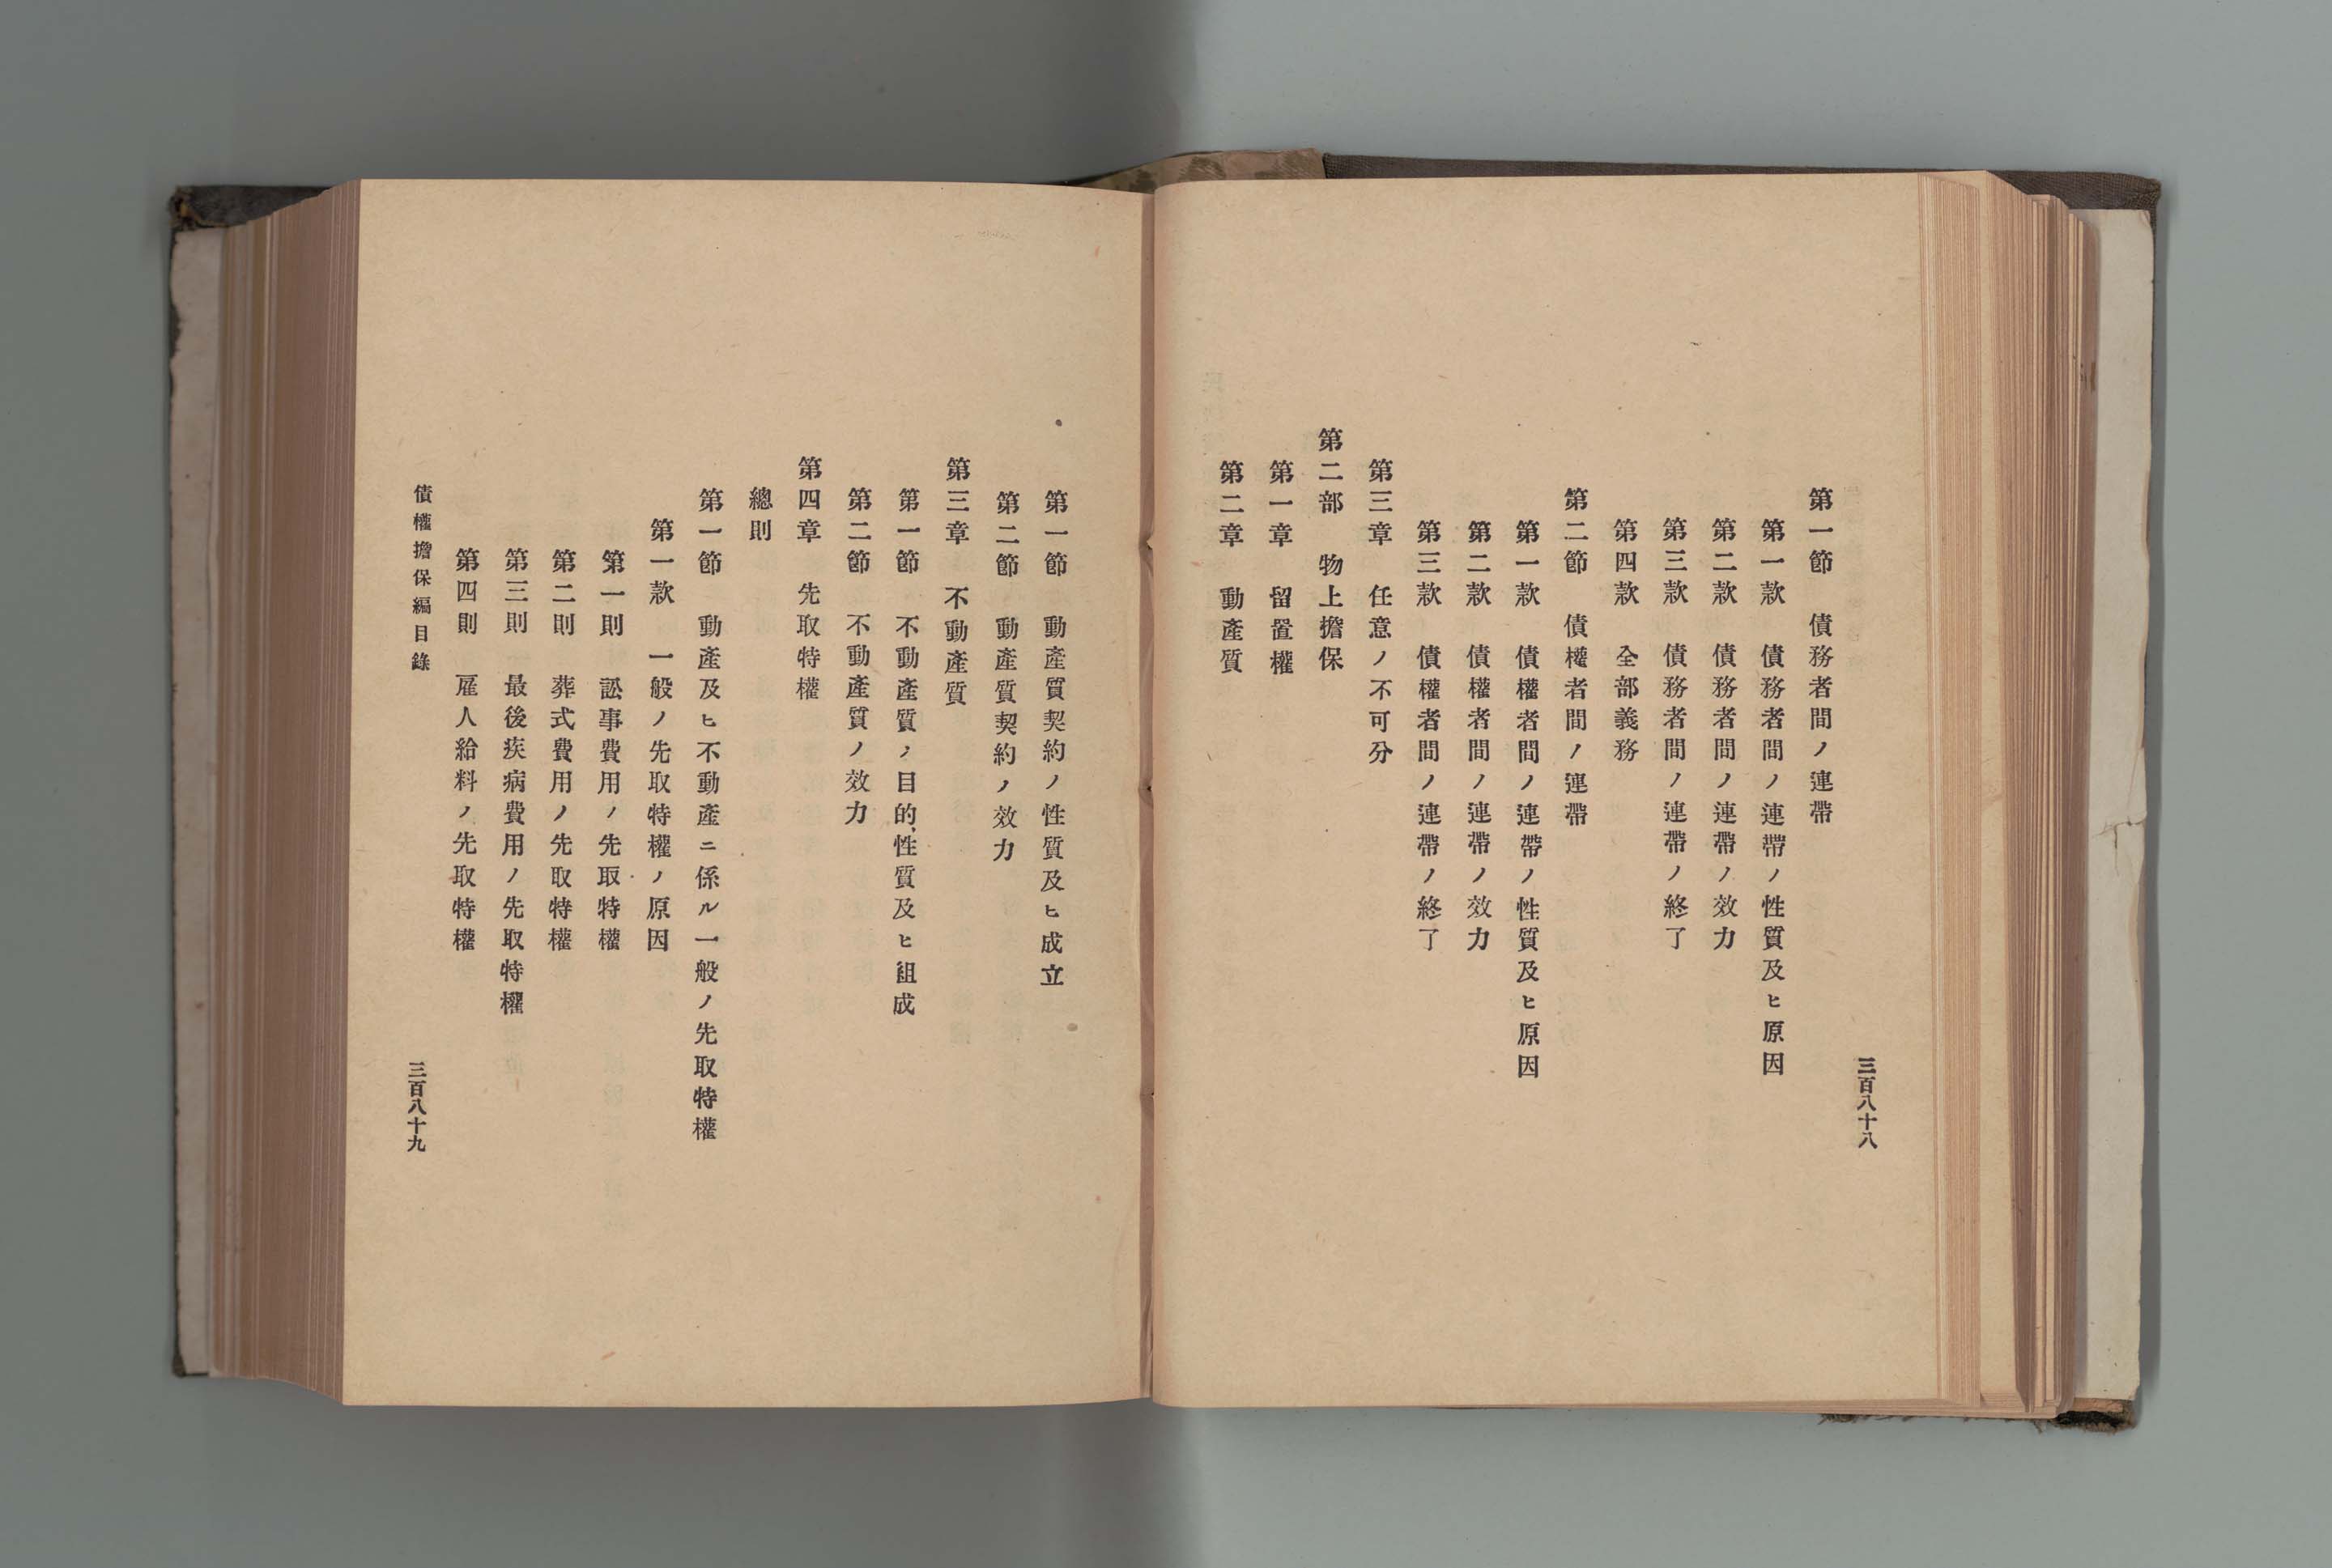 三百八十八
第一節　債務者間ノ連帶
第一款　債務者間ノ連帶ノ性質及ヒ原因
第二款　債務者間ノ連帶ノ效力
第三款　債務者間ノ連帶ノ終了
第四款　全部義務
第二節　債權者間ノ連帶
第一款　債權者間ノ連帶ノ性質及ヒ原因
第二款　債權者間ノ連帶ノ效力
第三款　債權者間ノ連帶ノ終了
第三章　任意ノ不可分
第二部　物上擔保
第一章　留置權
第二章　動產質
第一節　動產質契約ノ性質及ヒ成立
第二節　動產質契約ノ效力
第三章　不動產質
第一節　不動產質ノ目的、性質及ヒ組成
第二節　不動產質ノ效力
第四章　先取特權
總則
第一節　動產及ヒ不動產ニ係ル一般ノ先取特權
第一款　一般ノ先取特權ノ原因
第一則　訟事費用ノ先取特權
第二則　葬式費用ノ先取特權
第三則　最後疾病費用ノ先取特權
第四則　雇人給料ノ先取特權
債權擔保編目錄
三百八十九